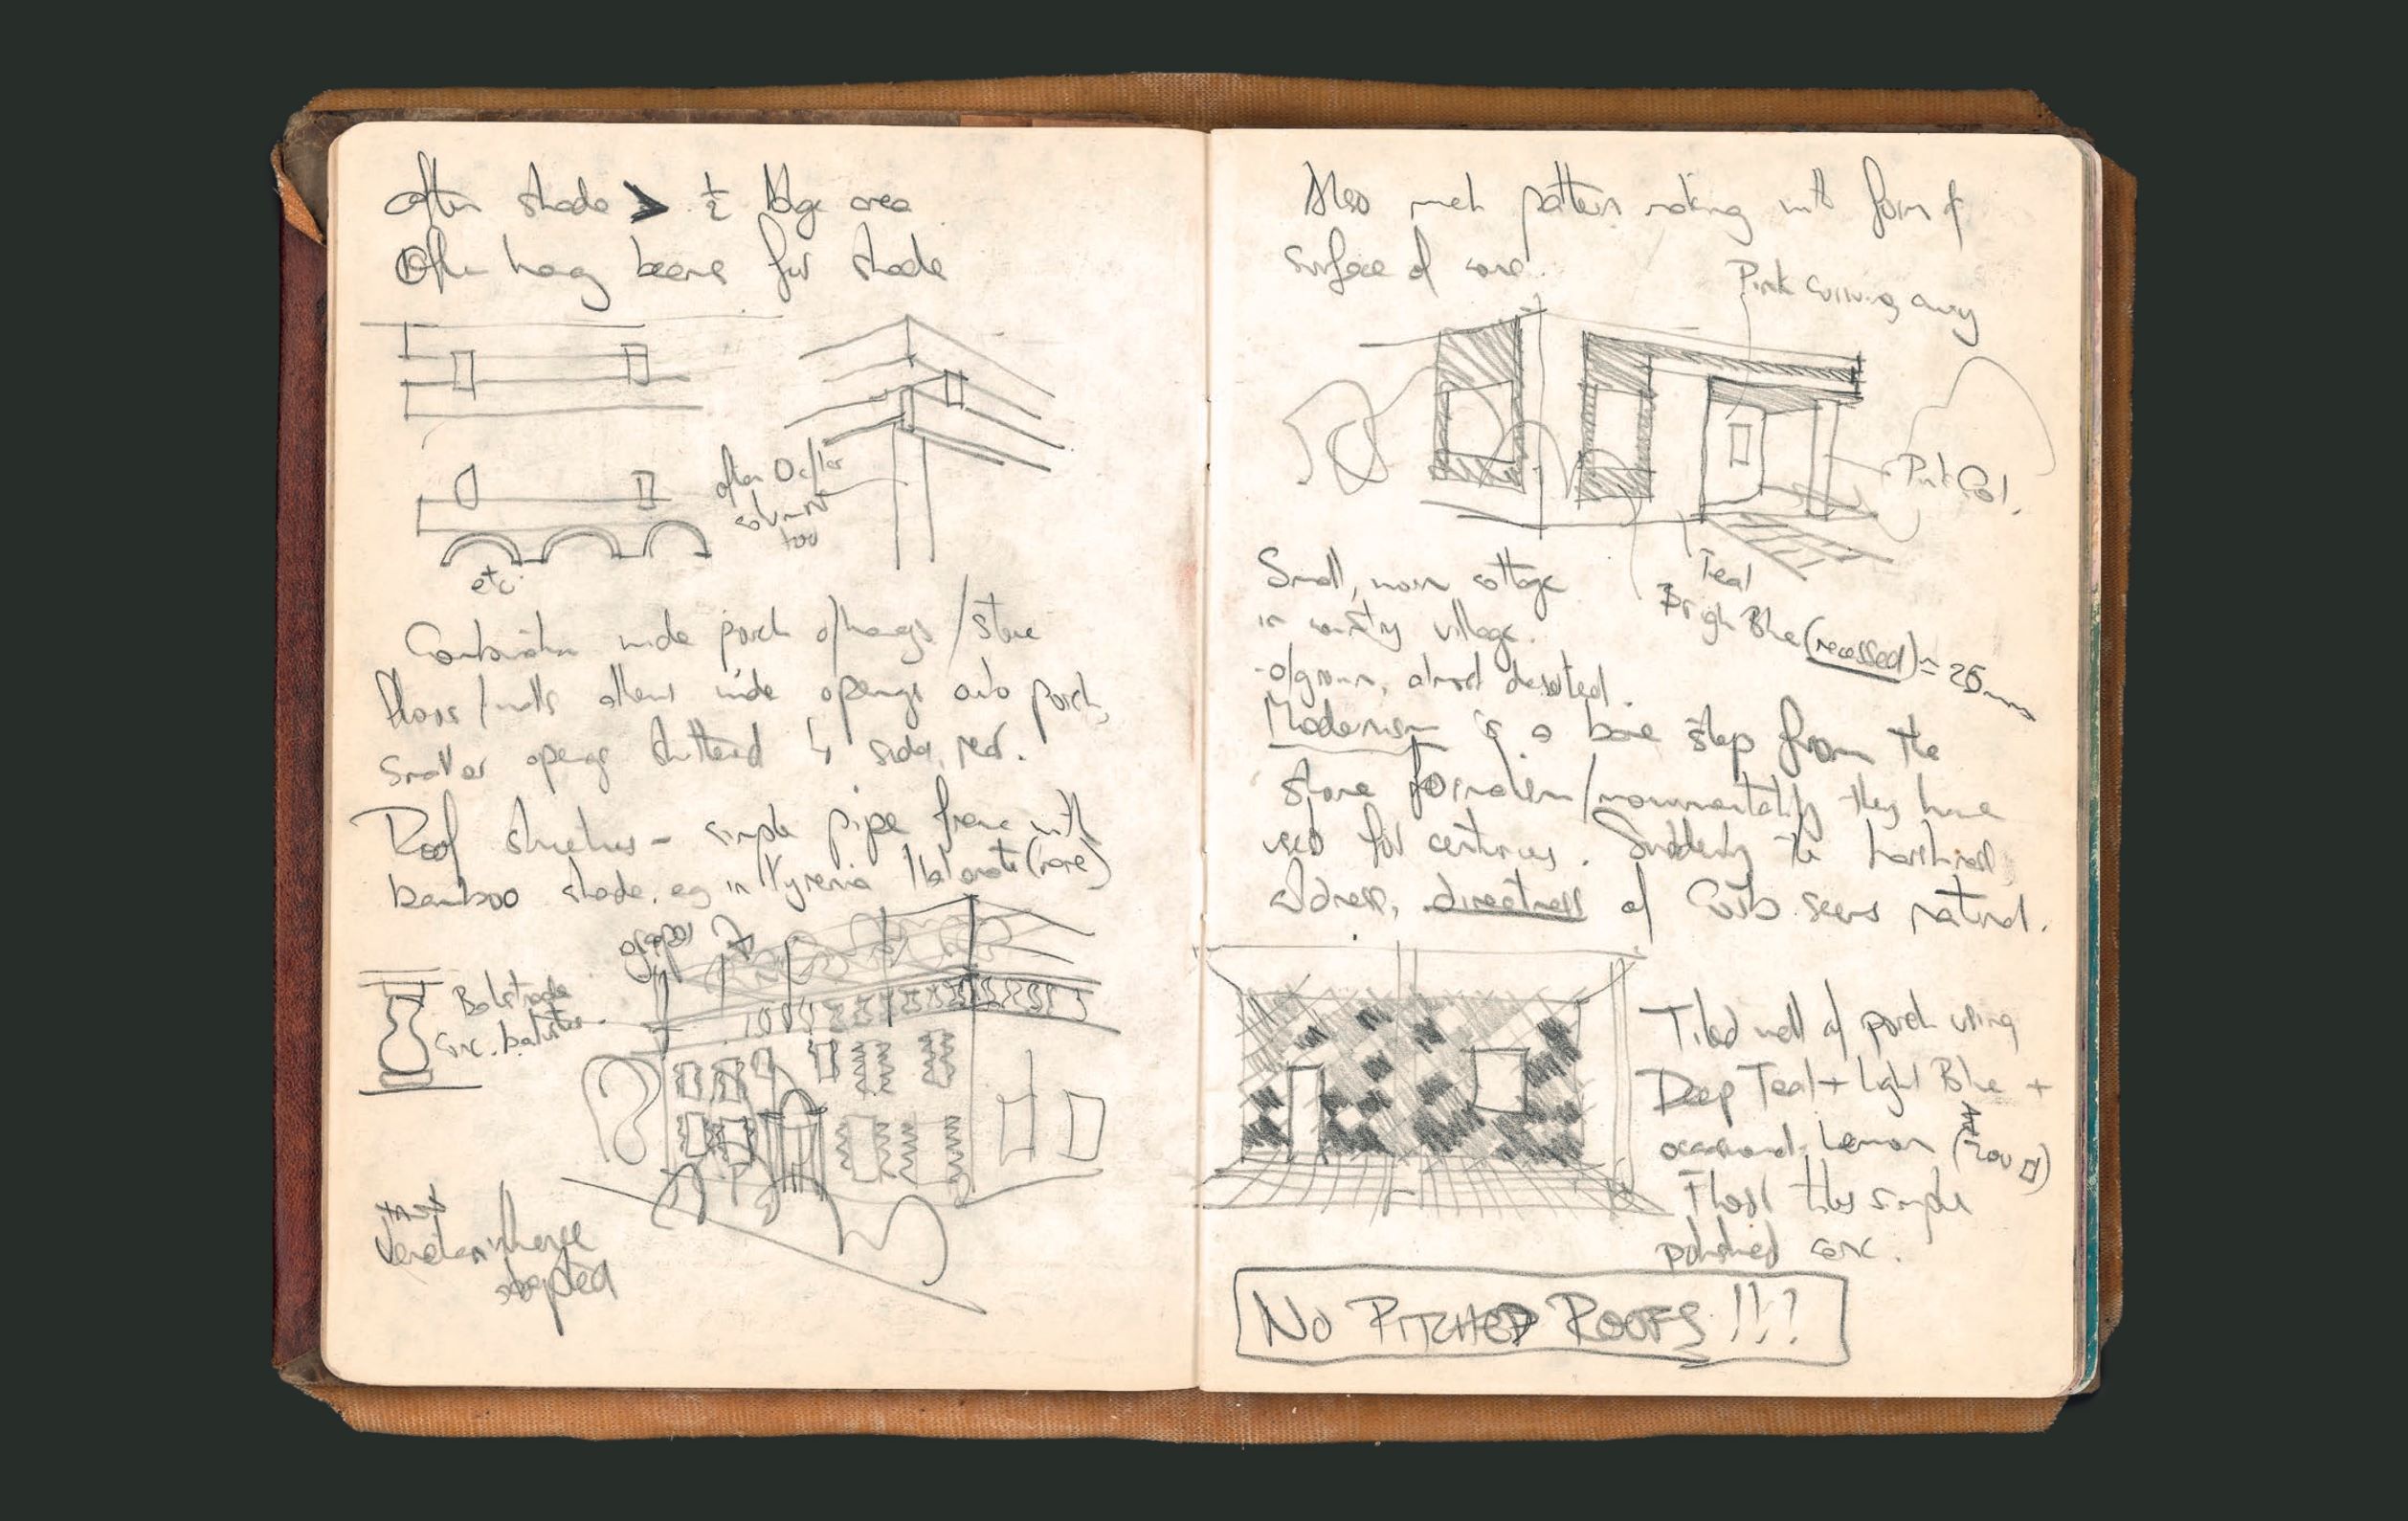 often shade > ½ bldg area
Often heavy beams for shade
often
column
too
etc.
Combination wide porch o/hangs / stone
floors / walls allows wide openings onto porch,
smaller openings shuttered
Roof structures - simple pipe frame with
bamboo shade. eg in Kyrenia (rare)
grapes
Balstrade
conc. baluster
adapted
Also much pattern making with form &
surface of
Pink curving away
Pink Col.
Teal
Bright Blue (recessed) ≈ 25mm
Small, cottage
in country village.
o/grown, almost deserted.
Modernism is a step from the
stone formalism/monumentality they have
used for centuries. Suddenly the harshness,
directness of Corb seems natural.
Tiled wall of porch using
Deep Teal + Light Blue +
occasional Lemon (200 □)
Floor tiles simple
polished conc.
NO PITCHED ROOFS !!?